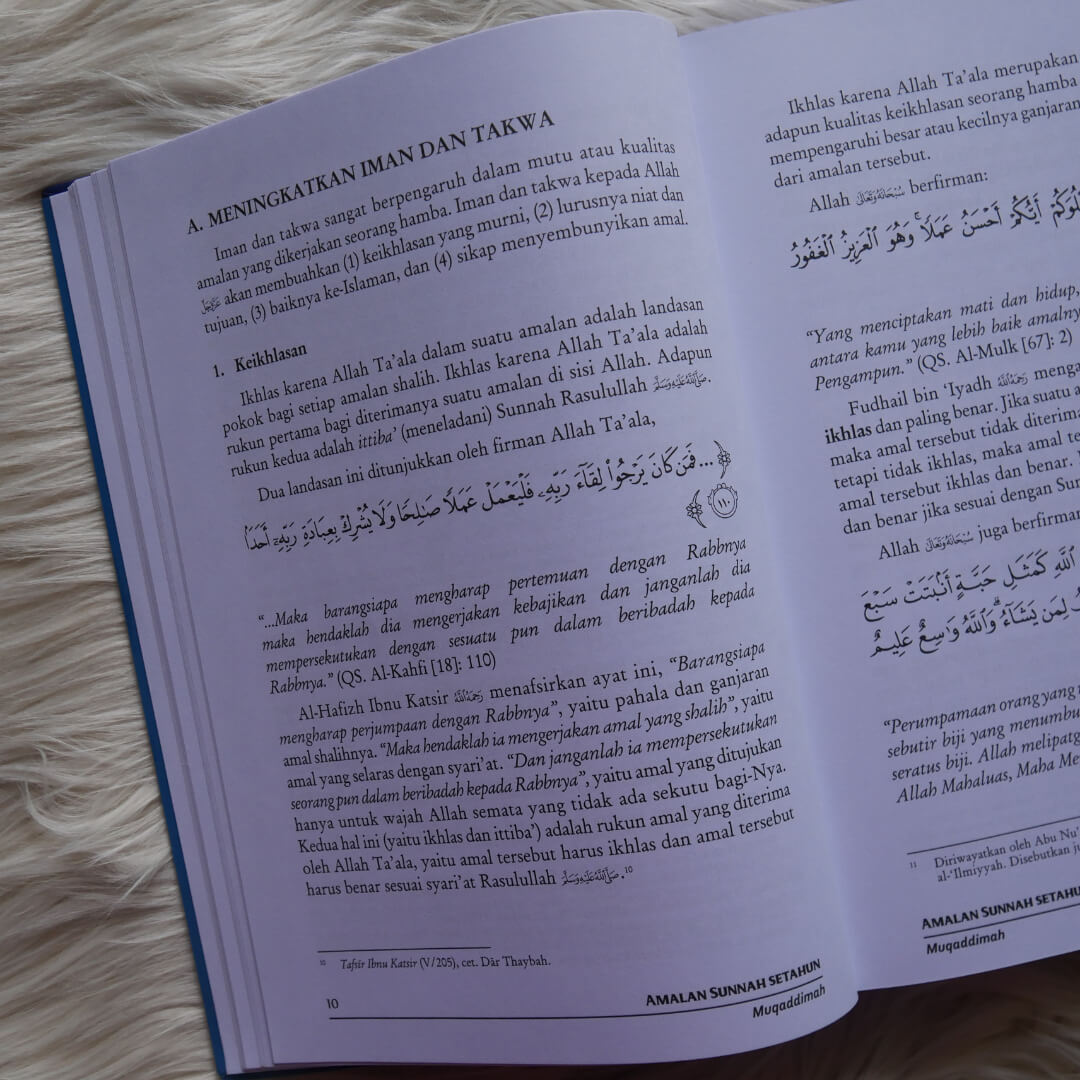 A. MENINGKATKAN IMAN DAN TAKWA
Iman dan takwa sangat berpengaruh dalam mutu atau kualitas
amalan yang dikerjakan seorang hamba. Iman dan takwa kepada Allah
عَزَّوَجَلَّ akan membuahkan (1) keikhlasan yang murni, (2) lurusnya niat dan
tujuan, (3) baiknya ke-Islaman, dan (4) sikap menyembunyikan amal.
1. Keikhlasan
Ikhlas karena Allah Ta’ala dalam suatu amalan adalah landasan
pokok bagi setiap amalan shalih. Ikhlas karena Allah Ta’ala adalah
rukun pertama bagi diterimanya suatu amalan di sisi Allah. Adapun
rukun kedua adalah ittiba’ (meneladani) Sunnah Rasulullah صَلَّى اللَّهُ عَلَيْهِ وَسَلَّمَ.
Dua landasan ini ditunjukkan oleh firman Allah Ta’ala,
... فَمَن كَانَ يَرْجُوا۟ لِقَآءَ رَبِّهِۦ فَلْيَعْمَلْ عَمَلًا صَـٰلِحًا وَلَا يُشْرِكْ بِعِبَادَةِ رَبِّهِۦٓ أَحَدًۢا
١١٠
“...Maka barangsiapa mengharap pertemuan dengan Rabbnya
maka hendaklah dia mengerjakan kebajikan dan janganlah dia
mempersekutukan dengan sesuatu pun dalam beribadah kepada
Rabbnya.” (QS. Al-Kahfi [18]: 110)
Al-Hafizh Ibnu Katsir رَحِمَهُ اللَّهُ menafsirkan ayat ini, “Barangsiapa
mengharap perjumpaan dengan Rabbnya”, yaitu pahala dan ganjaran
amal shalihnya. “Maka hendaklah ia mengerjakan amal yang shalih”, yaitu
amal yang selaras dengan syari’at. “Dan janganlah ia mempersekutukan
seorang pun dalam beribadah kepada Rabbnya”, yaitu amal yang ditujukan
hanya untuk wajah Allah semata yang tidak ada sekutu bagi-Nya.
Kedua hal ini (yaitu ikhlas dan ittiba’) adalah rukun amal yang diterima
oleh Allah Ta’ala, yaitu amal tersebut harus ikhlas dan amal tersebut
harus benar sesuai syari’at Rasulullah صَلَّى اللَّهُ عَلَيْهِ وَسَلَّمَ.¹⁰
¹⁰ Tafsîr Ibnu Katsir (V/205), cet. Dâr Thaybah.
10
AMALAN SUNNAH SETAHUN
Muqaddimah
Ikhlas karena Allah Ta’ala merupakan
adapun kualitas keikhlasan seorang hamba
mempengaruhi besar atau kecilnya ganjaran
dari amalan tersebut.
Allah سُبْحَانَهُ وَتَعَالَى berfirman:
أَيُّكُمْ أَحْسَنُ عَمَلًا ۚ وَهُوَ ٱلْعَزِيزُ ٱلْغَفُورُ
“Yang menciptakan mati dan hidup,
antara kamu yang lebih baik amalny
Pengampun.” (QS. Al-Mulk [67]: 2)
Fudhail bin ‘Iyadh رَحِمَهُ اللَّهُ menga
ikhlas dan paling benar. Jika suatu a
maka amal tersebut tidak diterima
tetapi tidak ikhlas, maka amal te
amal tersebut ikhlas dan benar.
dan benar jika sesuai dengan Sun
Allah سُبْحَانَهُ وَتَعَالَى juga berfirman
ٱللَّهِ كَمَثَلِ حَبَّةٍ أَنۢبَتَتْ سَبْعَ
لِمَن يَشَآءُ ۗ وَٱللَّهُ وَٰسِعٌ عَلِيمٌ
“Perumpamaan orang yang
sebutir biji yang menumbu
seratus biji. Allah melipatg
Allah Mahaluas, Maha Me
¹¹ Diriwayatkan oleh Abu Nu’
al-‘Ilmiyyah. Disebutkan ju
AMALAN SUNNAH SETAHU
Muqaddimah